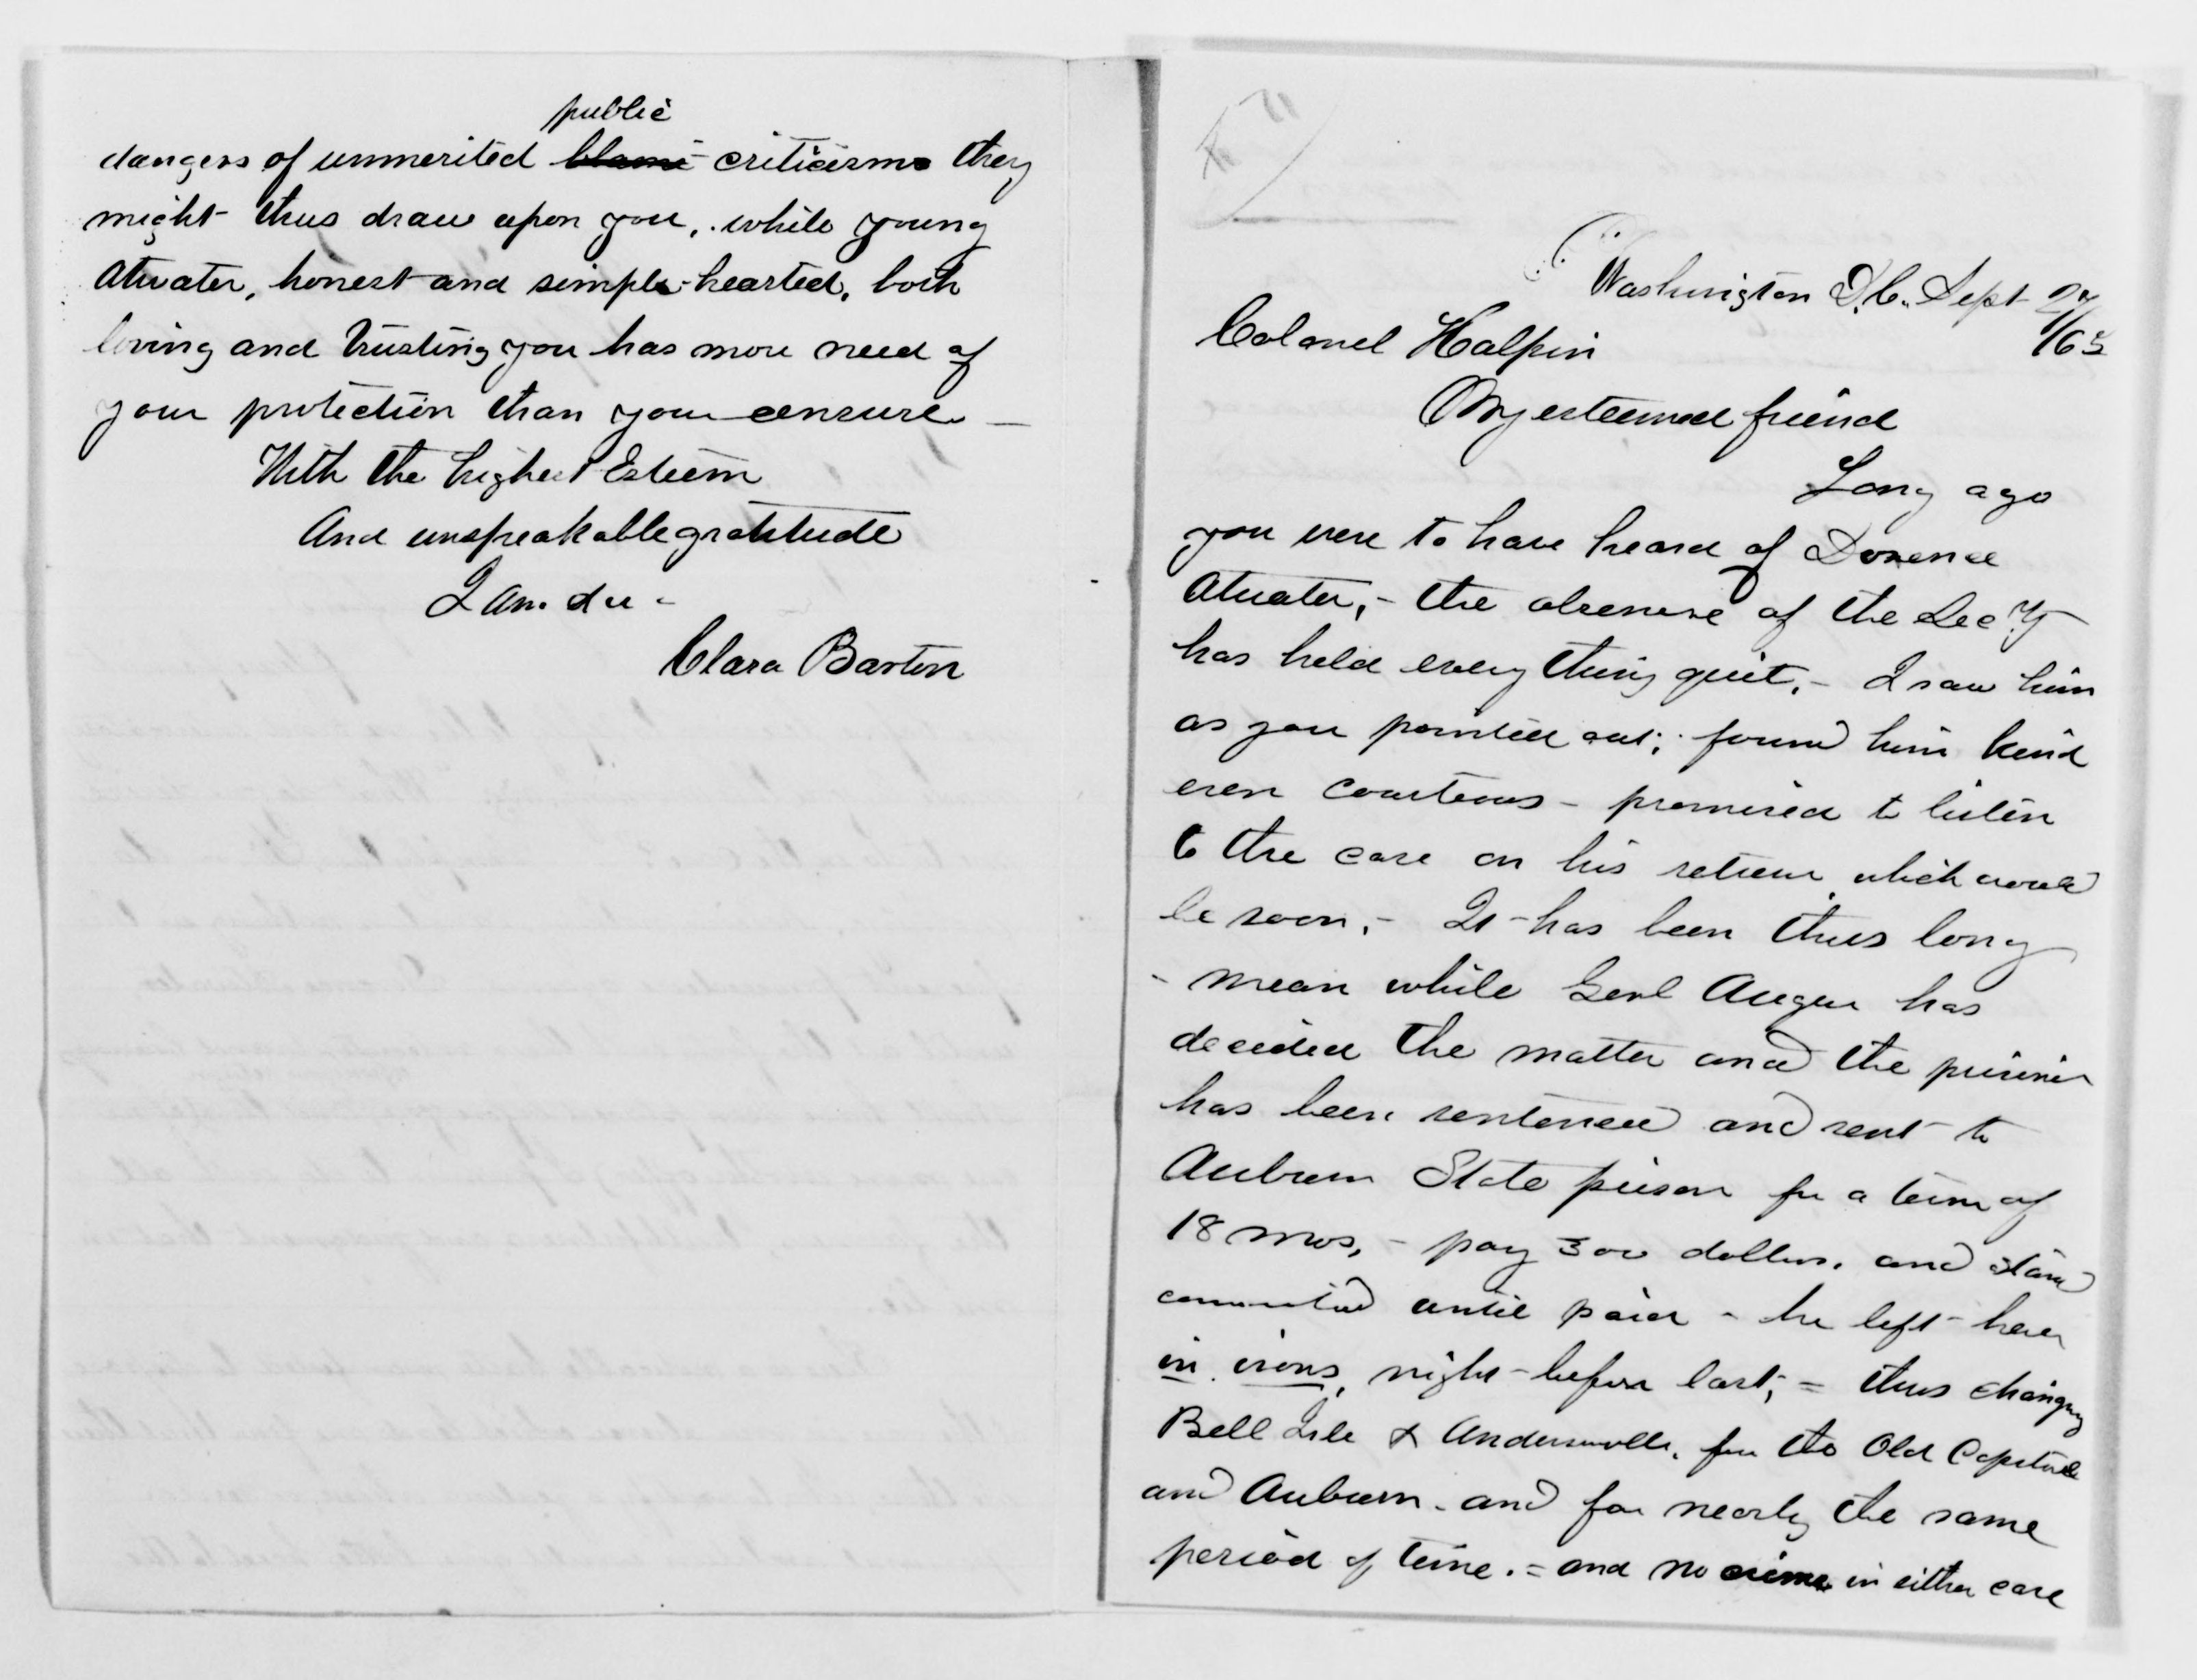 public
dangers of unmerited blame criticisms they
might thus draw upon you, while young
Atwater, honest and simple-hearted, both
loving and trusting you has more need of
your protection than your censure —
With the highest Esteem
And unspeakable gratitude
I am &c -
Clara Barton
Washington D.C. Sept 27/65
Colonel Halpin
My esteemed friend
Long ago
you were to have heard of Dorence
Atwater, - the absence of the Secy
has held every thing quiet, - I saw him
as you pointed out; found him kind
even courteous - promised to listen
to the case on his return which would
be soon, - It has been thus long
- mean while Genl Augur has
decided the matter and the prisoner
has been sentenced and sent to
Auburn State prison for a term of
18 mos, - pay 300 dollars. and stand
committed until paid - he left here
in irons, night before last; = thus changing
Bell Isle & Andersonville, for the Old Capitol
and Auburn - and for nearly the same
period of time. = and no crime in either case